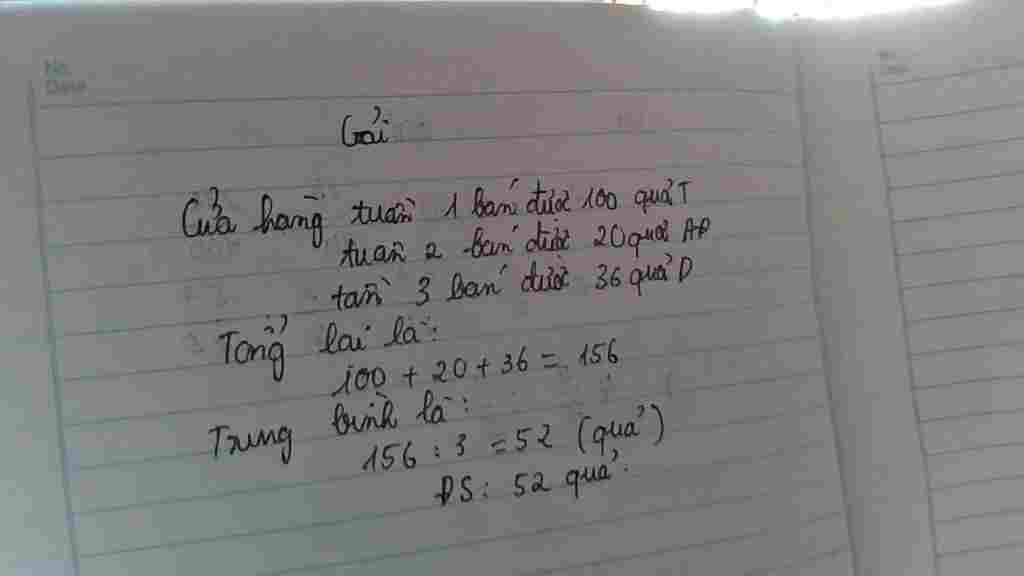 No.
Date
Giải
Cửa hàng tuần 1 bán được 100 quả T
tuần 2 bán được 20 quả AP
tần 3 bán được 36 quả D
Tổng lai là:
100 + 20 + 36 = 156
Trung bình là:
156 : 3 = 52 (quả)
ĐS: 52 quả